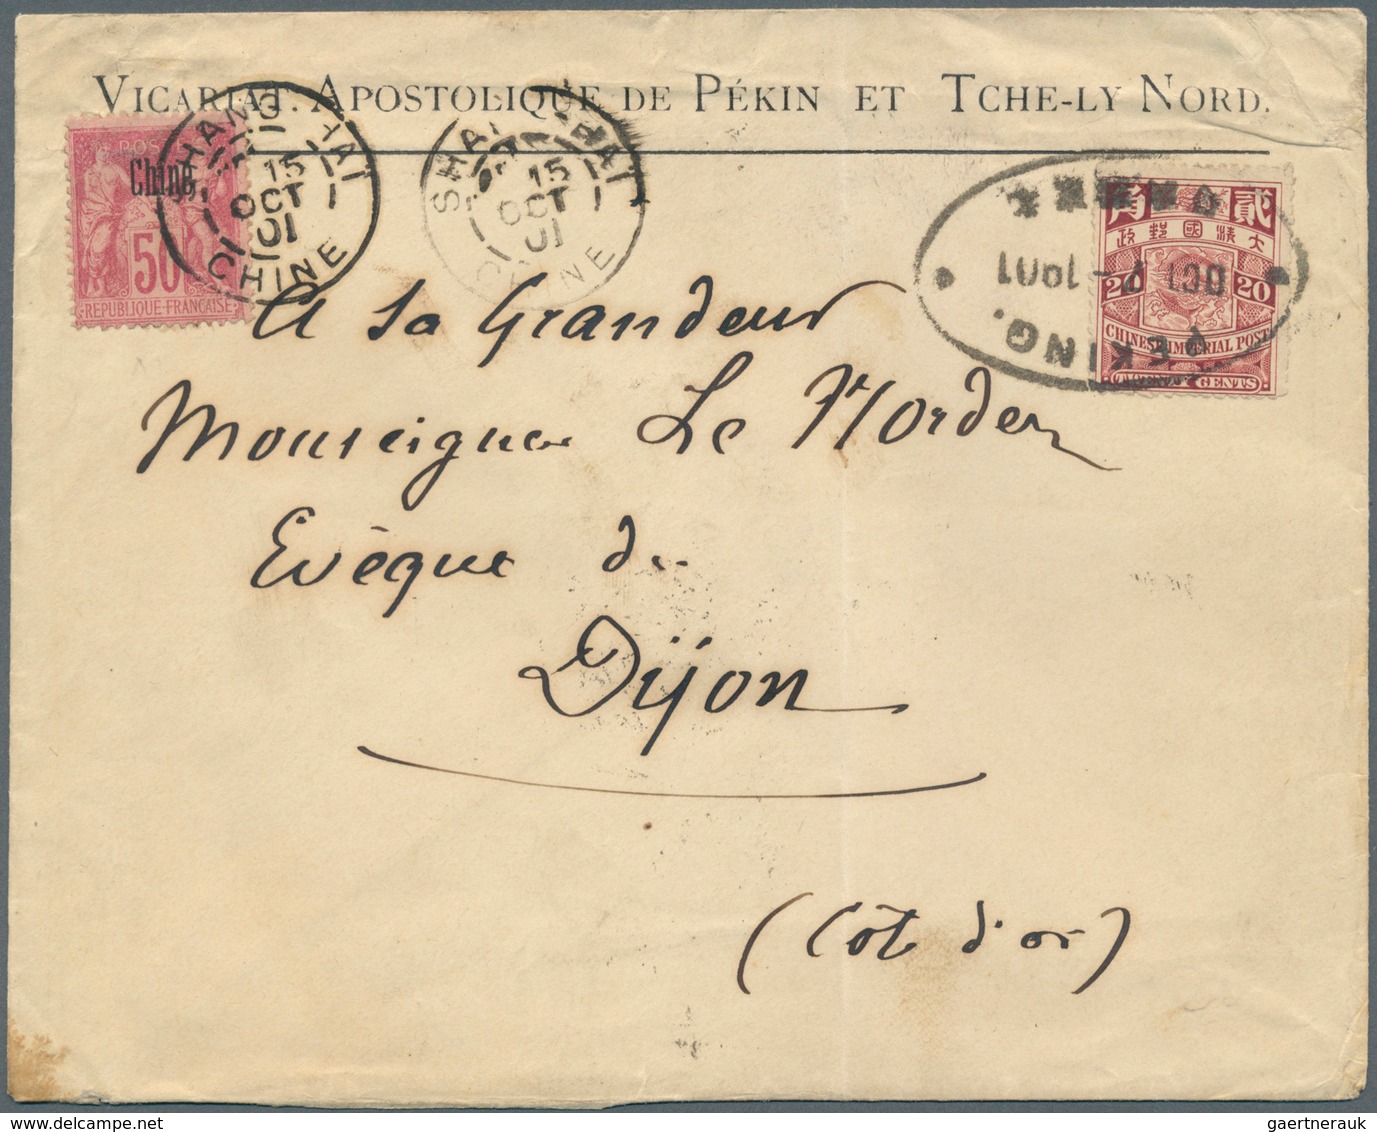 VICARIAT APOSTOLIQUE DE PÉKIN ET TCHE-LY NORD.
POS
Chine
50
REPUBLIQUE-FRANÇAISE
SHANG-HAI
15
OCT
01
CHINE
SHANG-HAI
15
OCT
01
CHINE
貳 角
大清國郵政
20 20
CHINESE IMPERIAL POST
CENTS
OCT 7 - 1901
PEKING.
A Sa Grandeur
Monseigneur Le Nordez
Evèque de
Dijon
(Côte d'or)
gaertnerauk